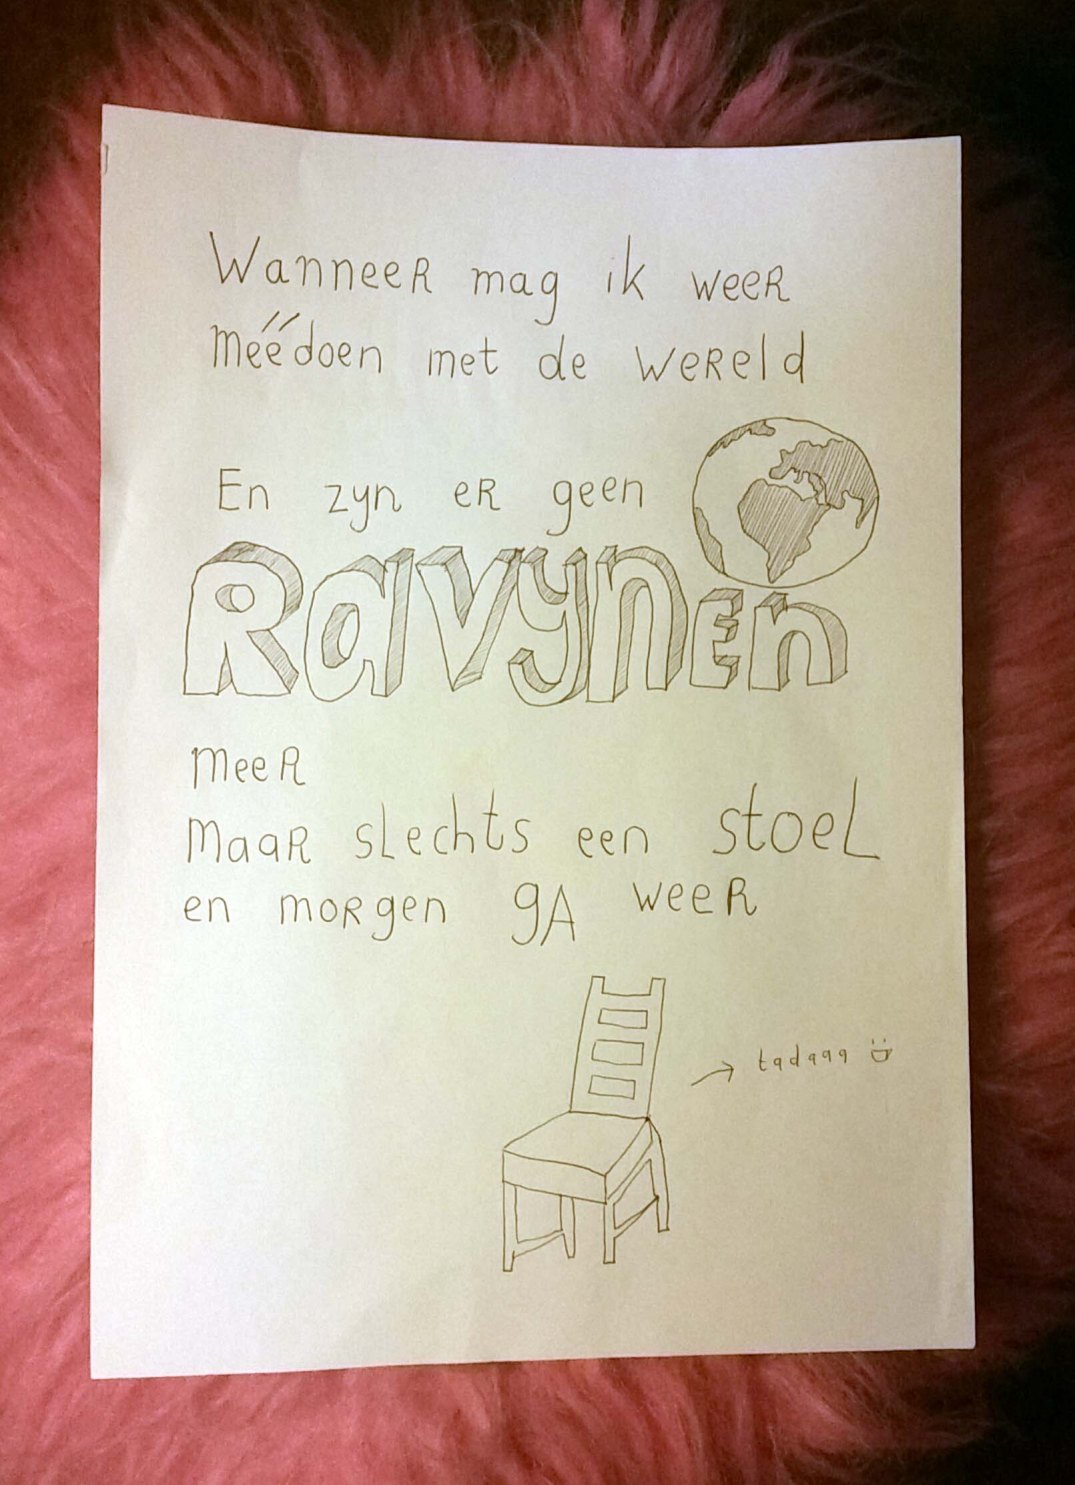 Wanneer mag ik weer
méédoen met de wereld
En zyn er geen
Ravynen
meer
Maar slechts een stoel
en morgen gA weer
tadaaa